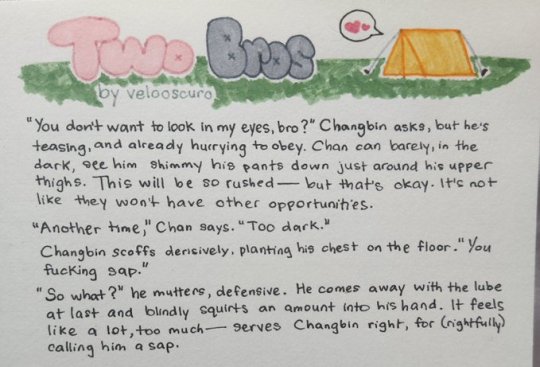 Two Bros
by velooscuro
"You don't want to look in my eyes, bro?" Changbin asks, but he's
teasing, and already hurrying to obey. Chan can barely, in the
dark, see him shimmy his pants down just around his upper
thighs. This will be so rushed — but that's okay. It's not
like they won't have other opportunities.
"Another time," Chan says. "Too dark."
Changbin scoffs derisively, planting his chest on the floor. "You
fucking sap."
"So what?" he mutters, defensive. He comes away with the lube
at last and blindly squirts an amount into his hand. It feels
like a lot, too much — serves Changbin right, for (rightfully)
calling him a sap.